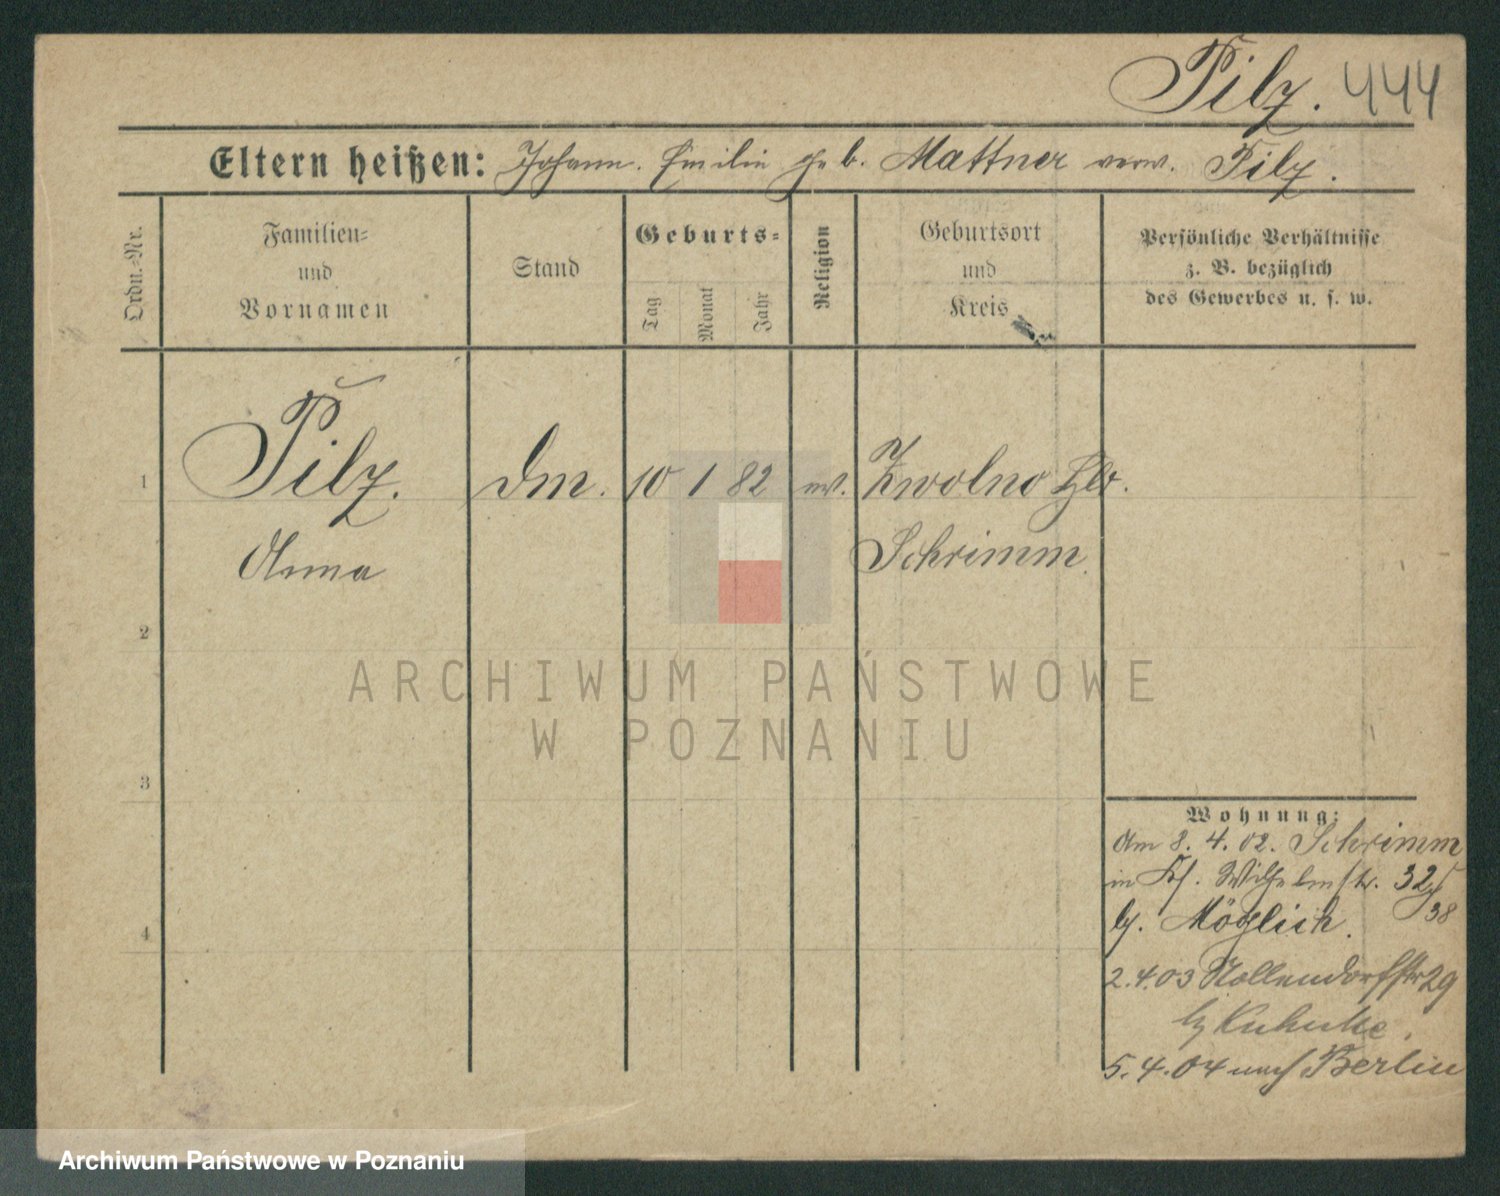 Pilz. 444
Eltern heißen: Johann. Emilie geb. Mattner verw. Pilz.
Ordn.-Nr.
Familien-
und
Vornamen
Stand
Geburts-
Tag
Monat
Jahr
Religion
Geburtsort
und
Kreis
Persönliche Verhältnisse
z. B. bezüglich
des Gewerbes u. s. w.
1 Pilz. 10 1 82 ev. Zwolno
Anna Schrimm
2
3
4
Wohnung:
Am 8. 4. 02. Schrimm
in Wilhelmstr. 32
38
bz. Möglich.
2.4.03 Nollendorfstr 29
bz Kuhnke.
5.4.04 nach Berlin
ARCHIWUM PAŃSTWOWE
W POZNANIU
Archiwum Państwowe w Poznaniu